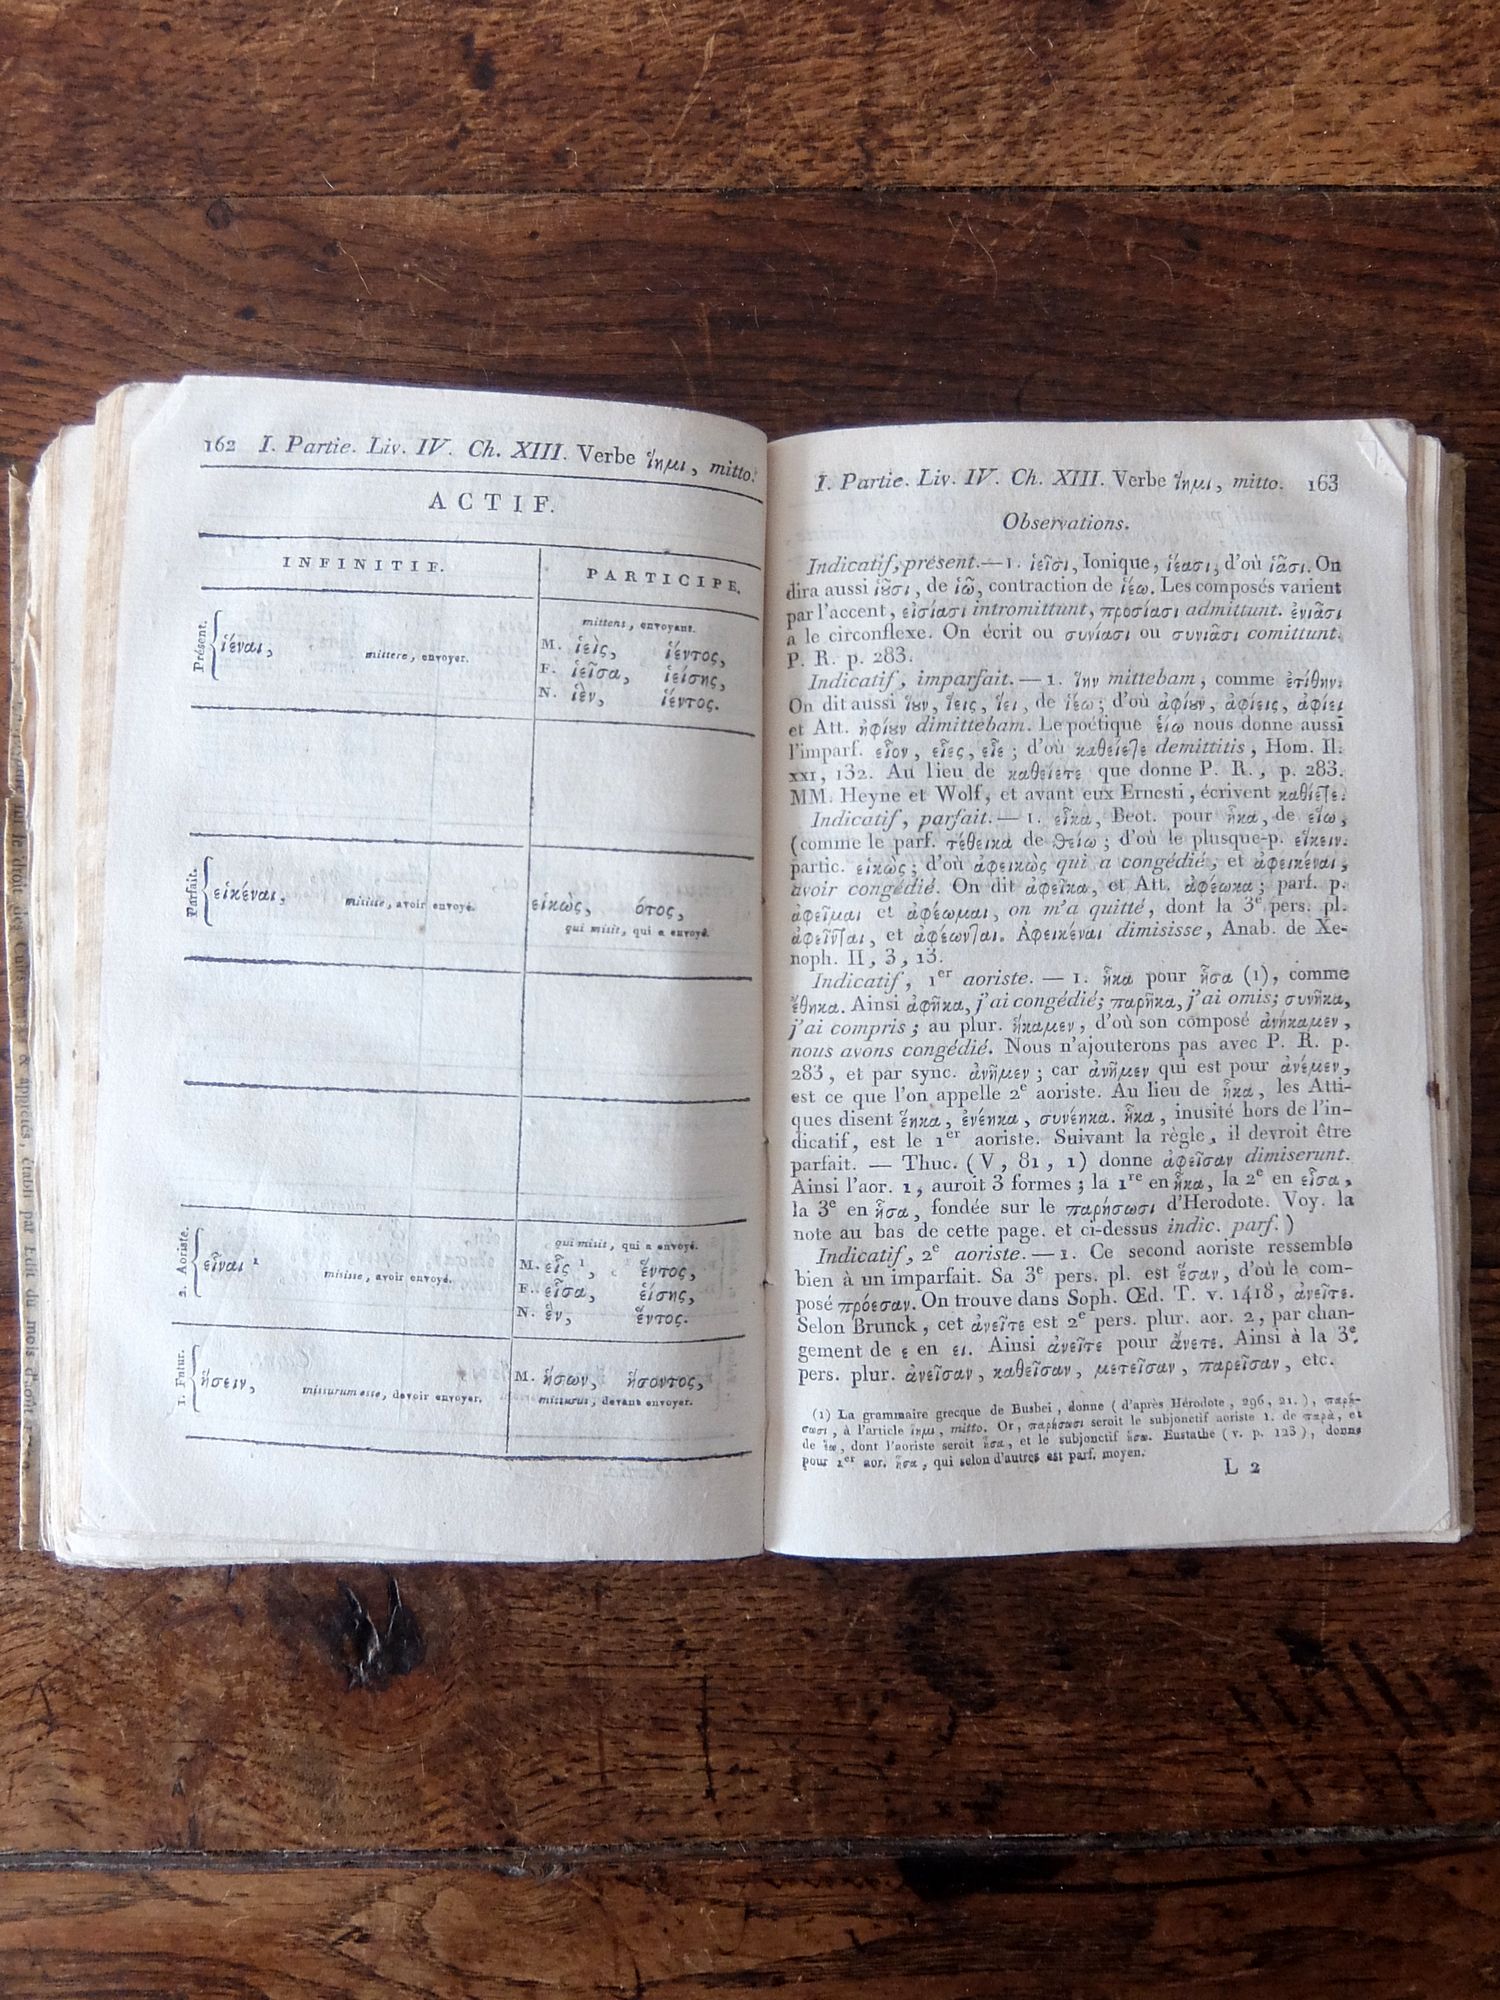 162 I. Partie. Liv. IV. Ch. XIII. Verbe ἵημι, mitto.
ACTIF.
INFINITIF.
PARTICIPE.
Présent.
ἱέναι, mittere, envoyer.
mittens, envoyant.
M. ἱεὶς, ἱέντος,
F. ἱεῖσα, ἱείσης,
N. ἱὲν, ἱέντος.
Parfait.
εἱκέναι, misisse, avoir envoyé.
εἱκὼς, ότος,
qui misit, qui a envoyé.
2. Aoriste.
εἷναι ¹ misisse, avoir envoyé.
qui misit, qui a envoyé.
M. εἵς ¹, ἕντος,
F. εἷσα, εἵσης,
N. ἓν, ἕντος.
1. Futur.
ἥσειν, missurum esse, devoir envoyer.
M. ἥσων, ἥσοντος,
missurus, devant envoyer.
I. Partie. Liv. IV. Ch. XIII. Verbe ἵημι, mitto. 163
Observations.
Indicatif, présent.—1. ἱεῖσι, Ionique, ἱέασι, d'où ἱᾶσι. On
dira aussi ἱȣ͂σι, de ἱῶ, contraction de ἱέω. Les composés varient
par l'accent, εἰσίασι intromittunt, προσίασι admittunt. ἐνιᾶσι
a le circonflexe. On écrit ou συνίασι ou συνιᾶσι comittunt.
P. R. p. 283.
Indicatif, imparfait.—1. ἵην mittebam, comme ἐτίθην.
On dit aussi ἵȣν, ἵεις, ἵει, de ἱέω; d'où ἀφίȣν, ἀφίεις, ἀφίει
et Att. ἠφίȣν dimittebam. Le poétique εἵω nous donne aussi
l'imparf. εἷον, εἷες, εἷε; d'où καθείετε demittitis, Hom. Il.
XXI, 132. Au lieu de καθείετε que donne P. R., p. 283.
MM. Heyne et Wolf, et avant eux Ernesti, écrivent καθίετε.
Indicatif, parfait.—1. εἷκα, Beot. pour ἧκα, de εἵω,
(comme le parf. τέθεικα de θείω; d'où le plusque-p. εἵκειν.
partic. εἱκὼς; d'où ἀφεικὼς qui a congédié, et ἀφεικέναι,
avoir congédié. On dit ἀφεῖκα, et Att. ἀφέωκα; parf. p.
ἀφεῖμαι et ἀφέωμαι, on m'a quitté, dont la 3e pers. pl.
ἀφεῖνται, et ἀφέωνται. Ἀφεικέναι dimisisse, Anab. de Xe-
noph. II, 3, 13.
Indicatif, 1er aoriste. — 1. ἧκα pour ἧσα (1), comme
ἔθηκα. Ainsi ἀφῆκα, j'ai congédié; παρῆκα, j'ai omis; συνῆκα,
j'ai compris; au plur. ἥκαμεν, d'où son composé ἀνήκαμεν,
nous avons congédié. Nous n'ajouterons pas avec P. R. p.
283, et par sync. ἀνῆμεν; car ἀνῆμεν qui est pour ἀνέμεν,
est ce que l'on appelle 2e aoriste. Au lieu de ἧκα, les Atti-
ques disent ἕηκα, ἐνέηκα, συνέηκα. ἧκα, inusité hors de l'in-
dicatif, est le 1er aoriste. Suivant la règle, il devroit être
parfait. — Thuc. (V, 81, 1) donne ἀφεῖσαν dimiserunt.
Ainsi l'aor. 1, auroit 3 formes; la 1re en ἧκα, la 2e en εἷσα,
la 3e en ἧσα, fondée sur le παρήσωσι d'Herodote. Voy. la
note au bas de cette page. et ci-dessus indic. parf.)
Indicatif, 2e aoriste.—1. Ce second aoriste ressemble
bien à un imparfait. Sa 3e pers. pl. est ἕσαν, d'où le com-
posé πρόεσαν. On trouve dans Soph. Œd. T. v. 1418, ἀνεῖτε.
Selon Brunck, cet ἀνεῖτε est 2e pers. plur. aor. 2, par chan-
gement de ε en ει. Ainsi ἀνεῖτε pour ἄνετε. Ainsi à la 3e.
pers. plur. ἀνεῖσαν, καθεῖσαν, μετεῖσαν, παρεῖσαν, etc.
(1) La grammaire grecque de Busbei, donne (d'après Hérodote, 296, 21.), παρή-
σωσι, à l'article ἵημι, mitto. Or, παρήσωσι seroit le subjonctif aoriste 1. de παρὰ, et
de ἕω, dont l'aoriste seroit ἧσα, et le subjonctif ἥσω. Eustathe (v. p. 123), donne
pour 1er aor. ἧσα, qui selon d'autres est parf. moyen.
L 2